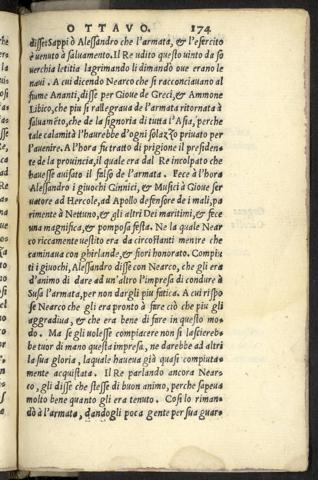 OTTAVO. 174
disse: Sappi ò Alessandro che l'armata, & l'esercito
è venuto à saluamento. Il Re udito questo vinto da so
uerchia letitia lagrimando li dimandò oue erano le
naui. A cui dicendo Nearco che si racconciauano al
fiume Ananti, disse per Gioue de Greci, & Ammone
Libico, che piu si rallegraua de l'armata ritornata à
saluamẽto, che de la signoria di tutta l'Asia, perche
tale calamità l'haurebbe d'ogni solazzo priuato per
l'auenire. A l'hora fu tratto di prigione il presiden-
te de la prouincia, il quale era dal Re incolpato che
hauesse auisato il falso de l'armata. Fece à l'hora
Alessandro i giuochi Ginnici, & Musici à Gioue ser
uatore ad Hercole, ad Apollo defensore de i mali, pa
rimente à Nettuno, & gli altri Dei maritimi, & fece
una magnifica, & pomposa festa. Ne la quale Near
co riccamente uestito era da circostanti mentre che
caminaua con ghirlande, & fiori honorato. Compiu
ti i giuochi, Alessandro disse con Nearco, che gli era
d'animo di dare ad un'altro l'impresa di condure à
Susa l'armata, per non dargli piu fatica. A cui rispo
se Nearco che gli era pronto à fare ciò che piu gli
aggradiua, & che era bene di fare in questo mo-
do. Ma se gli uolesse compiacere non si lascierebbe
be tuor di mano questa impresa, ne darebbe ad altri
la sua gloria, laquale haueua già quasi compiuta-
mente acquistata. Il Re parlando ancora Near-
co, gli disse che stesse di buon animo, perche sapeua
molto bene quanto gli era tenuto. Cosi lo riman-
dò à l'armata, dandogli poca gente per sua guar-